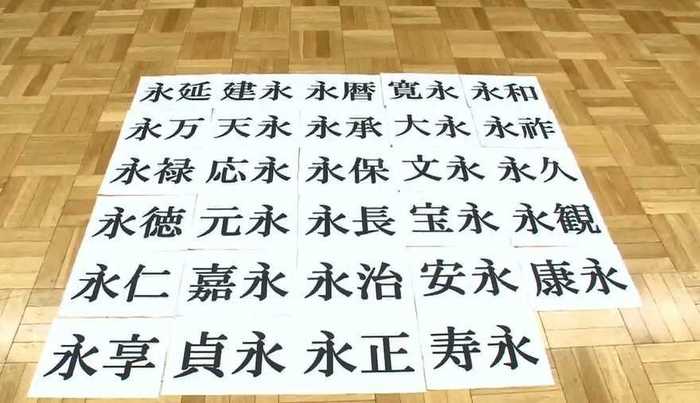 永延 建永 永暦 寛永 永和
永万 天永 永承 大永 永祚
永禄 応永 永保 文永 永久
永徳 元永 永長 宝永 永観
永仁 嘉永 永治 安永 康永
永享 貞永 永正 寿永